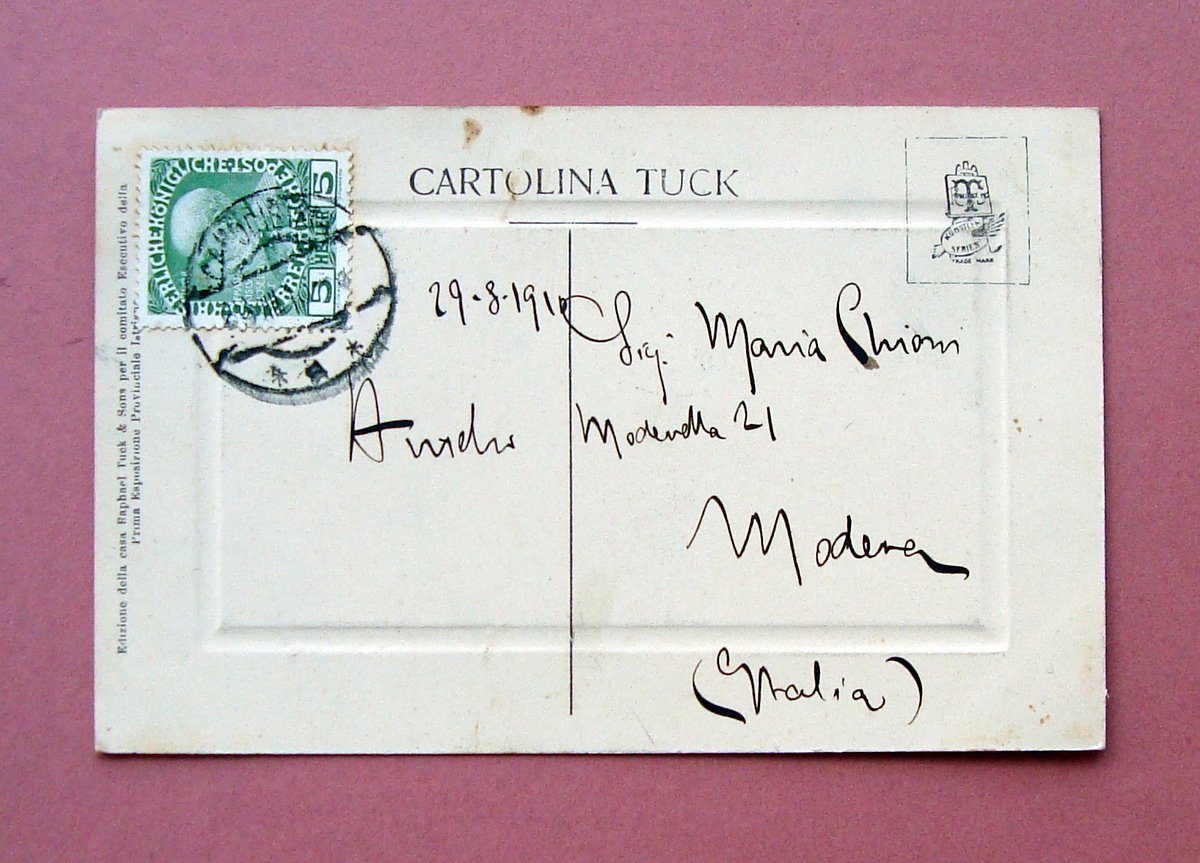 CARTOLINA TUCK
KAISERLICHE KÖNIGLICHE ÖSTERREICHISCHE POST
5 HELLER 5
SERIEN
TRADE MARK
29-8-1910
Sig. Maria Chioni
Aurelio
Modenella 21
Modena
(Italia)
Edizione della casa Raphael Tuck & Sons per il comitato Esecutivo della
Prima Esposizione Provinciale Istriana